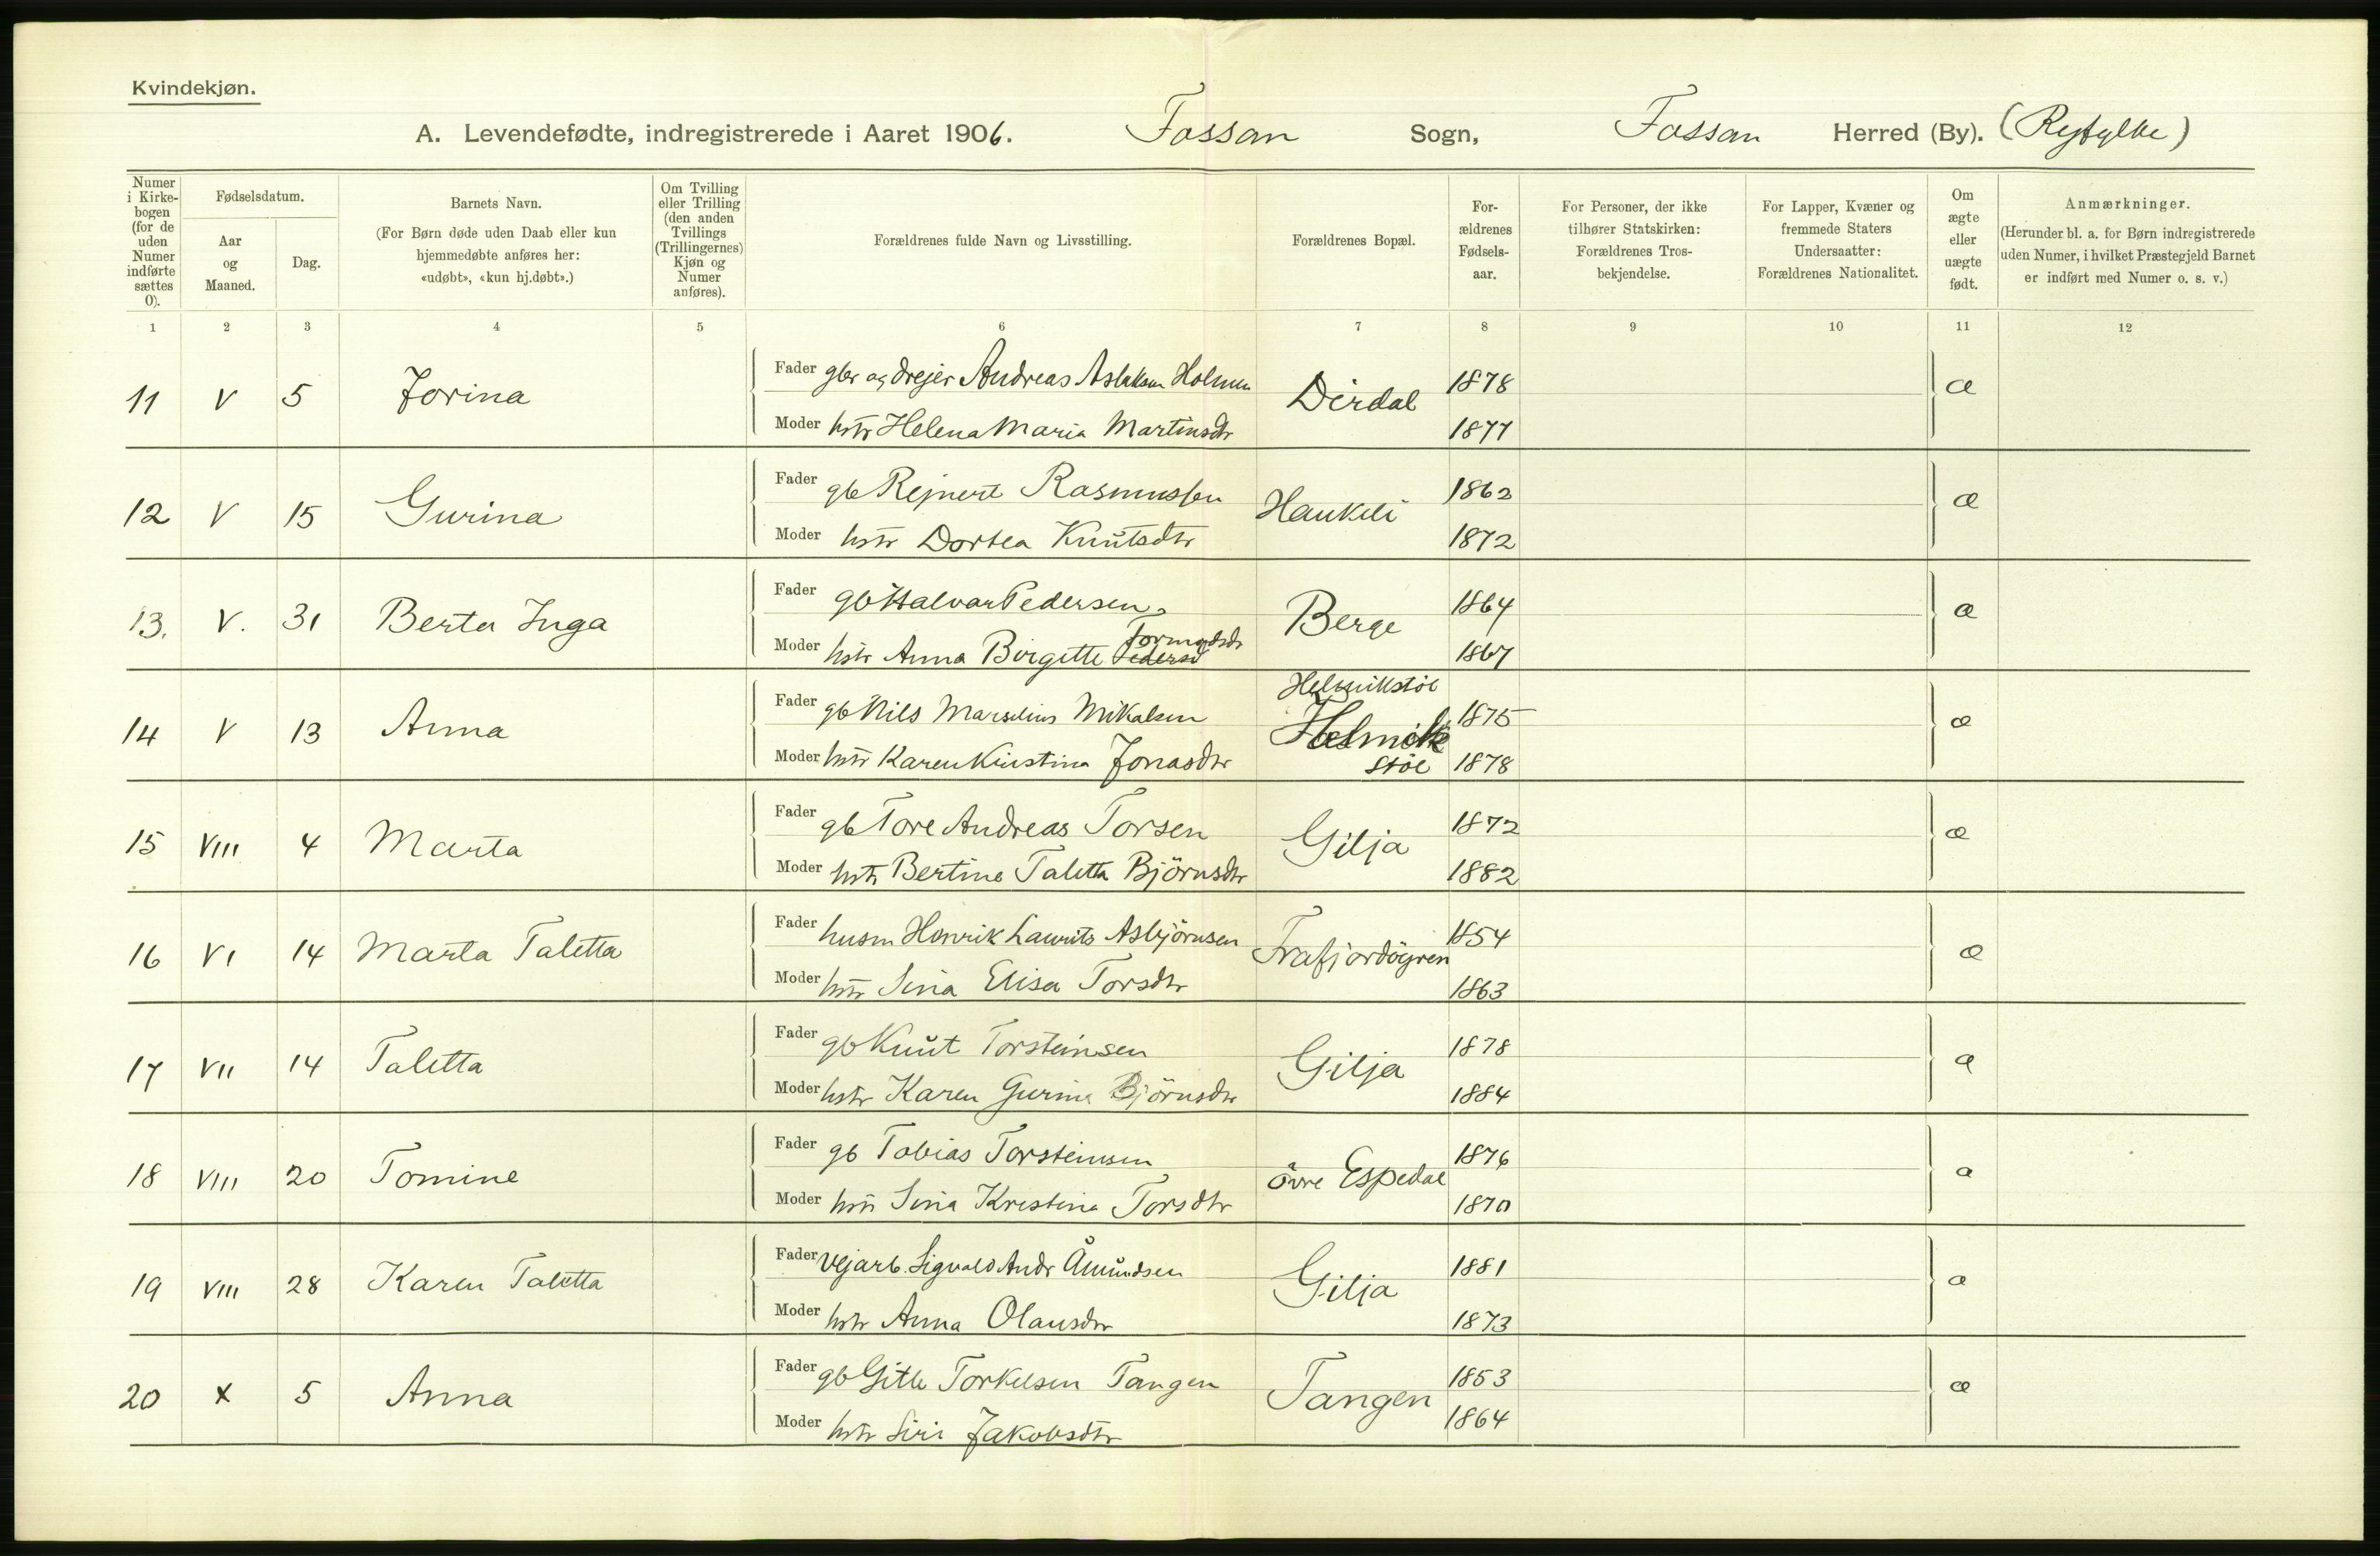 Kvindekjøn.
A. Levendefødte, indregistrerede i Aaret 1906. Fossan Sogn, Fossan Herred (By). (Ryfylke)
Numer i Kirkebogen (for de uden Numer indførte sættes 0).
Fødselsdatum.
Aar og Maaned.
Dag.
Barnets Navn.
(For Børn døde uden Daab eller kun hjemmedøbte anføres her: «udøbt», «kun hj.døbt».)
Om Tvilling eller Trilling (den anden Tvillings (Trillingernes) Kjøn og Numer anføres).
Forældrenes fulde Navn og Livsstilling.
Forældrenes Bopæl.
Forældrenes Fødselsaar.
For Personer, der ikke tilhører Statskirken: Forældrenes Trosbekjendelse.
For Lapper, Kvæner og fremmede Staters Undersaatter: Forældrenes Nationalitet.
Om ægte eller uægte født.
Anmærkninger.
(Herunder bl. a. for Børn indregistrerede uden Numer, i hvilket Præstegjeld Barnet er indført med Numer o. s. v.)
1 2 3 4 5 6 7 8 9 10 11 12
11 V 5 Jorina Fader gbr og drejer Andreas Aslaksen Holmen Dirdal 1878 æ
Moder hstr Helena Maria Martinsdtr 1877
12 V 15 Gurina Fader gb Rejnert Rasmussen Haukeli 1862 æ
Moder hstr Dortea Knutsdtr 1872
13. V. 31 Berta Inga Fader gb Halvar Pedersen Berge 1864 æ
Moder hstr Anna Birgitte Pedersd Tormodsdr 1867
14 V 13 Anna Fader gb Nils Marselius Mikalsen Helmikstöl 1875 æ
Moder hstr Karen Kristina Jonasdtr Helmikstöl 1878
15 VIII 4 Marta Fader gb Tore Andreas Torsen Gilja 1872 æ
Moder hstr Bertine Taletta Björnsdtr 1882
16 VI 14 Marta Taletta Fader husm Henrik Laurits Asbjörnsen Frafjordöyren 1854 æ
Moder hstr Sina Elisa Torsdtr 1863
17 VII 14 Taletta Fader gb Knut Torsteinsen Gilja 1878 æ
Moder hstr Karen Gurina Björnsdtr 1884
18 VIII 20 Tomine Fader gb Tobias Torsteinsen övre Espedal 1876 æ
Moder hstr Sina Kristina Torsdtr 1870
19 VIII 28 Karen Taletta Fader Vejarb. Sigvald Andr Åmundsen Gilja 1881 æ
Moder hstr Anna Olausdtr 1873
20 X 5 Anna Fader gb Gitle Torkelsen Tangen Tangen 1853 æ
Moder hstr Siri Jakobsdtr 1864